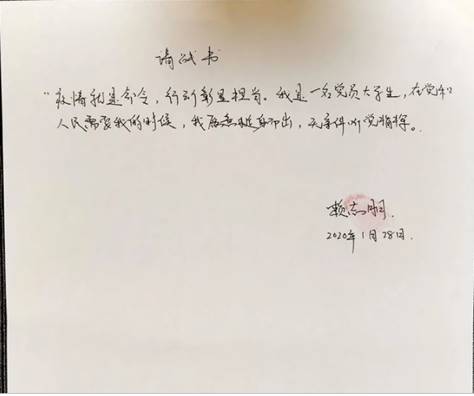 请战书
“疫情就是命令，行动彰显担当。我是一名党员大学生，在党和
人民需要我的时候，我愿意挺身而出，无条件听党指挥。
赖志明
2020年1月28日.